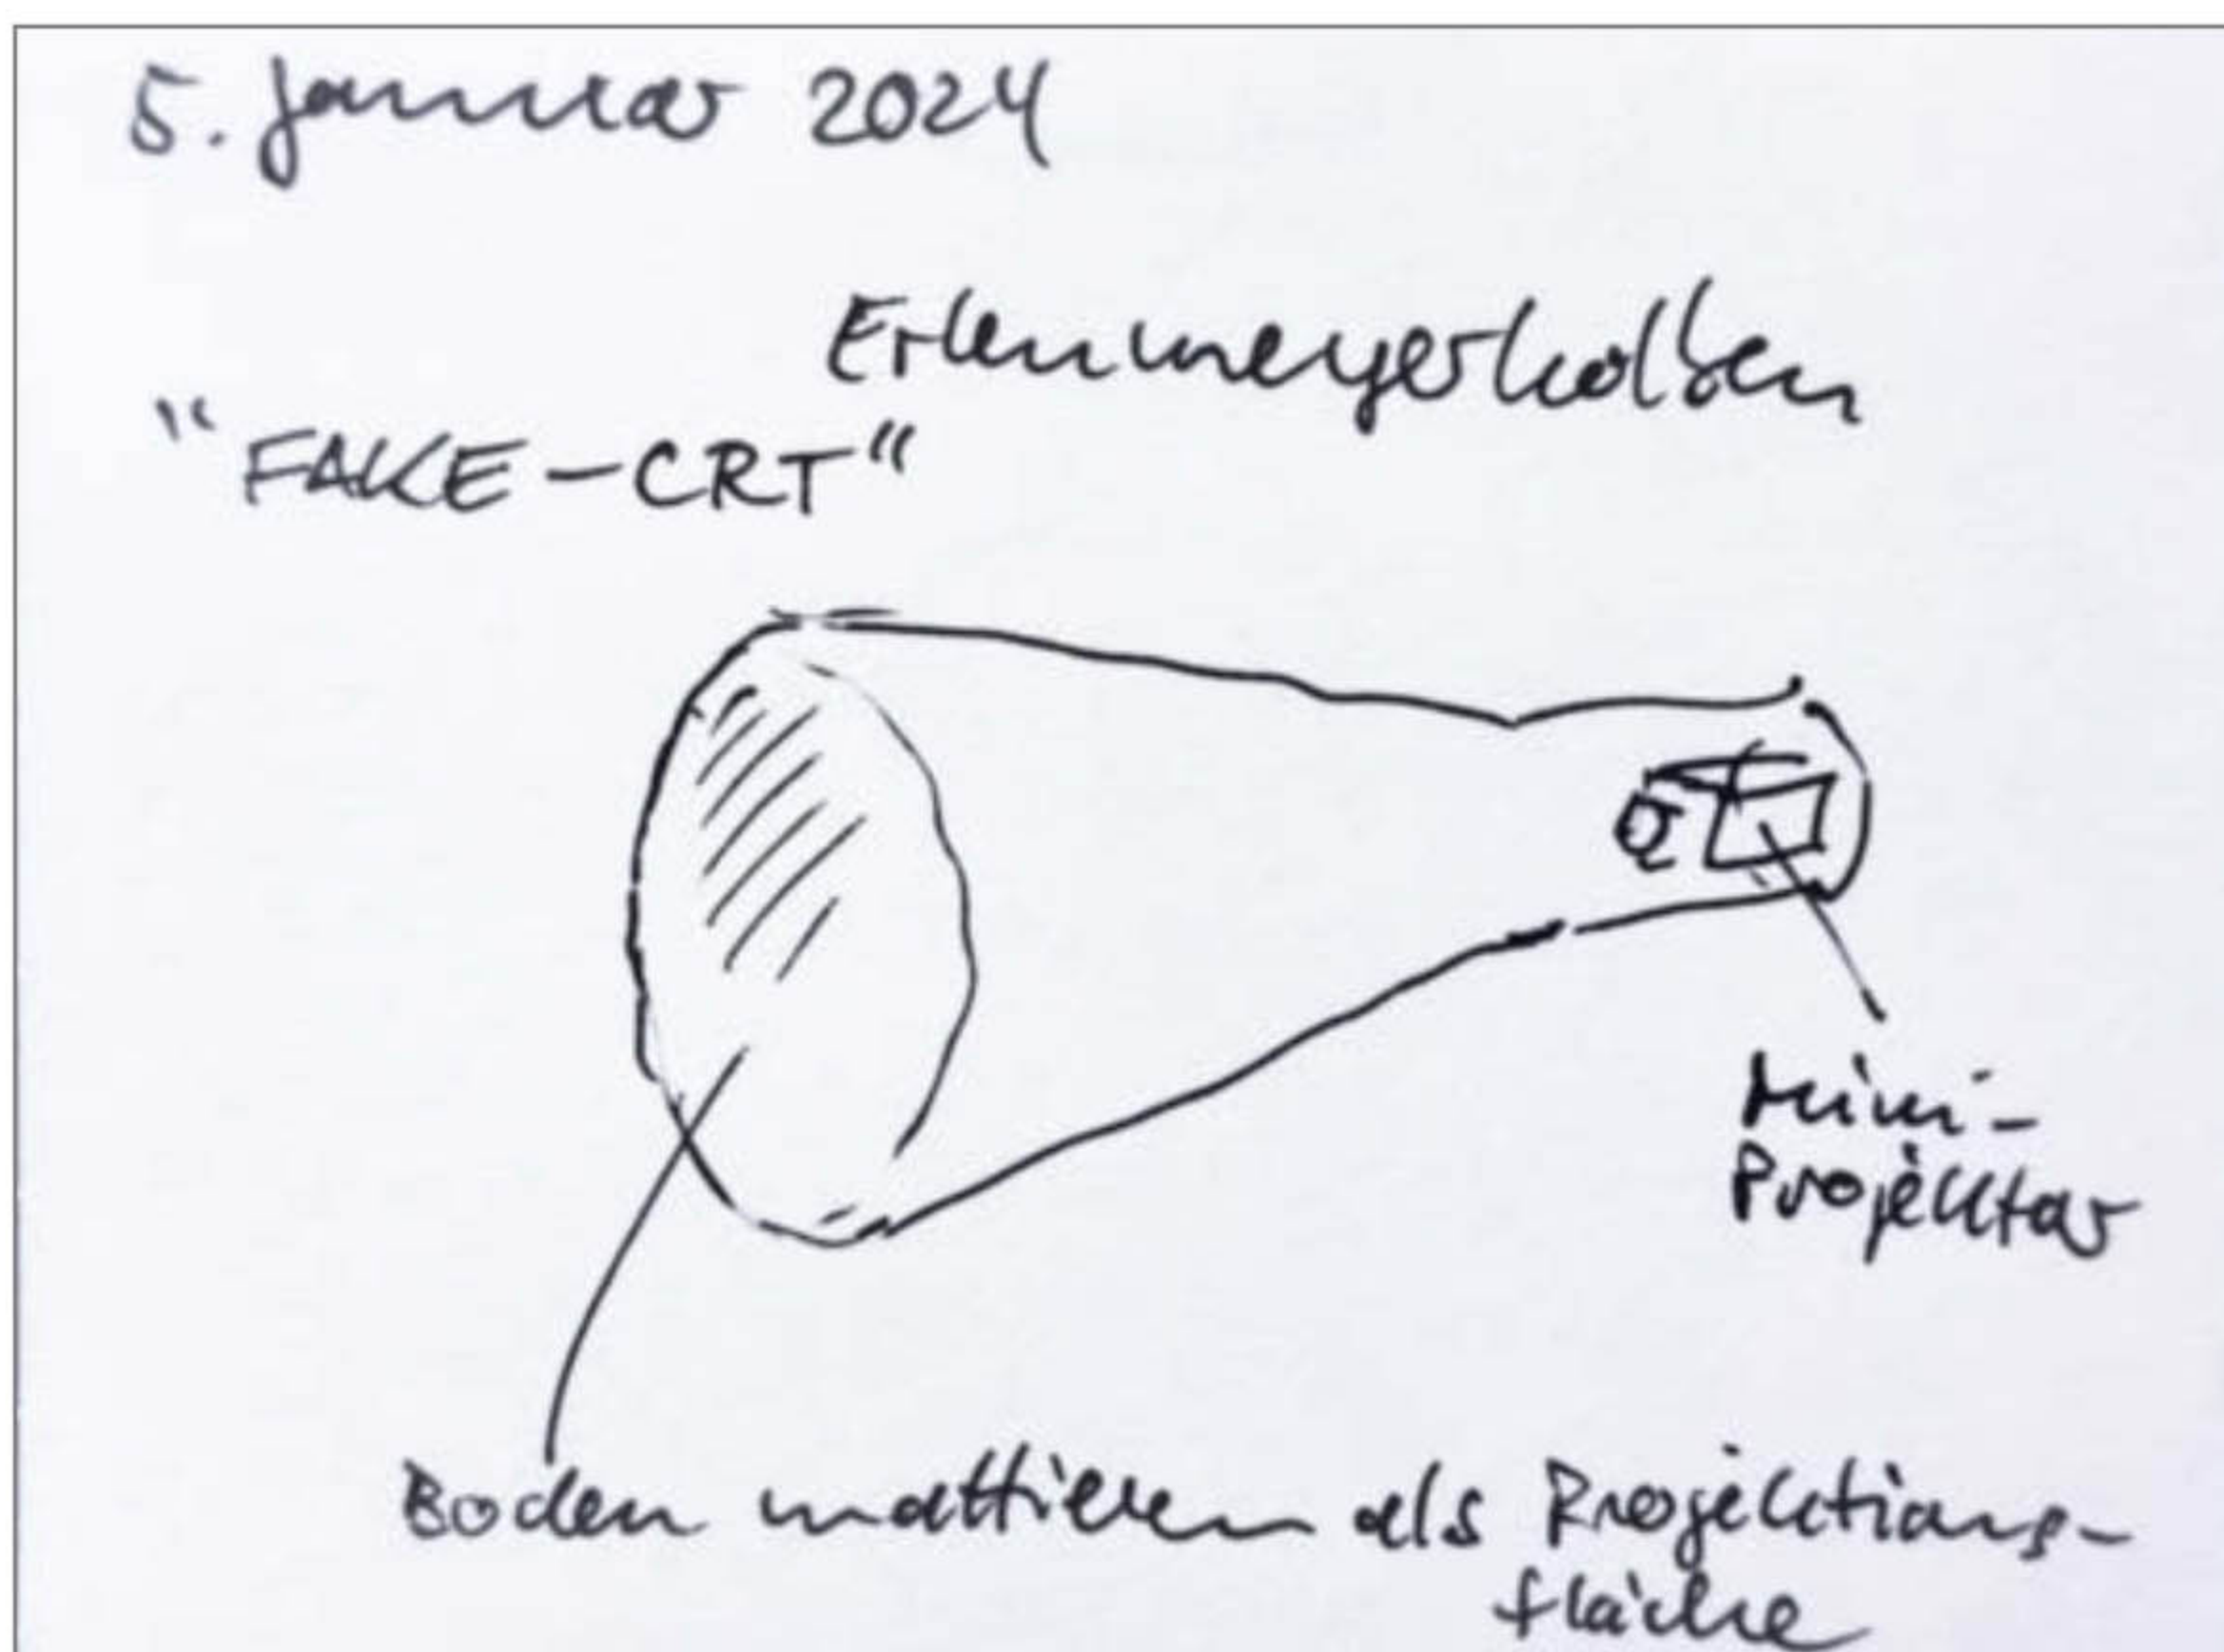 5. Januar 2024
Erlenmeyerkolben
"FAKE-CRT"
Mini-
Projektor
Boden mattieren als Projektions-
fläche